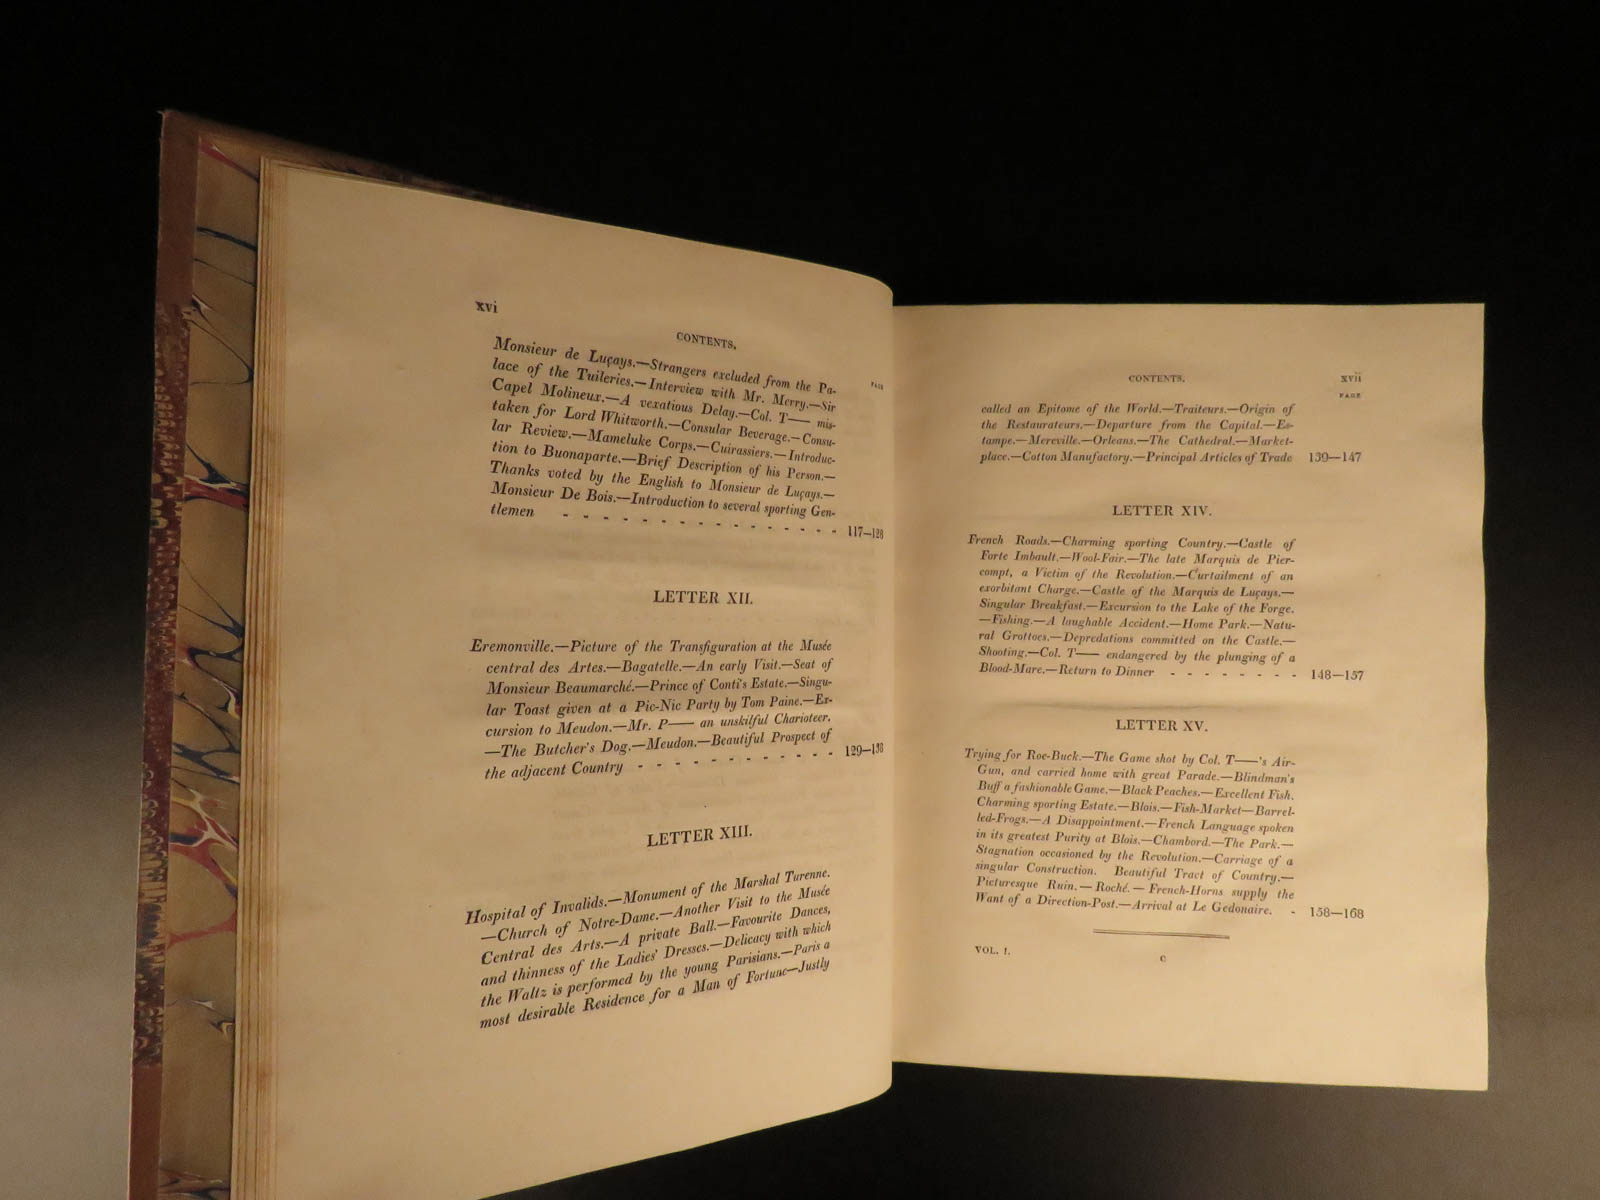 xvi
CONTENTS.
PAGE
Monsieur de Luçays.—Strangers excluded from the Pa-
lace of the Tuileries.—Interview with Mr. Merry.—Sir
Capel Molineux.—A vexatious Delay.—Col. T—— mis-
taken for Lord Whitworth.—Consular Beverage.—Consu-
lar Review.—Mameluke Corps.—Cuirassiers.—Introduc-
tion to Buonaparte.—Brief Description of his Person.—
Thanks voted by the English to Monsieur de Luçays.—
Monsieur De Bois.—Introduction to several sporting Gen-
tlemen - - - - - - - - - - - - - - - 117—128
LETTER XII.
Eremonville.—Picture of the Transfiguration at the Musée
central des Artes.—Bagatelle.—An early Visit.—Seat of
Monsieur Beaumarché.—Prince of Conti's Estate.—Singu-
lar Toast given at a Pic-Nic Party by Tom Paine.—Ex-
cursion to Meudon.—Mr. P—— an unskilful Charioteer.
—The Butcher's Dog.—Meudon.—Beautiful Prospect of
the adjacent Country - - - - - - - - - - - 129—138
LETTER XIII.
Hospital of Invalids.—Monument of the Marshal Turenne.
—Church of Notre-Dame.—Another Visit to the Musée
Central des Arts.—A private Ball.—Favourite Dances,
and thinness of the Ladies' Dresses.—Delicacy with which
the Waltz is performed by the young Parisians.—Paris a
most desirable Residence for a Man of Fortune—Justly
CONTENTS. xvii
PAGE
called an Epitome of the World.—Traiteurs.—Origin of
the Restaurateurs.—Departure from the Capital.—Es-
tampe.—Mereville.—Orleans.—The Cathedral.—Market-
place.—Cotton Manufactory.—Principal Articles of Trade 139—147
LETTER XIV.
French Roads.—Charming sporting Country.—Castle of
Forte Imbault.—Wool-Fair.—The late Marquis de Pier-
compt, a Victim of the Revolution.—Curtailment of an
exorbitant Charge.—Castle of the Marquis de Luçays.—
Singular Breakfast.—Excursion to the Lake of the Forge.
—Fishing.—A laughable Accident.—Home Park.—Natu-
ral Grottoes.—Depredations committed on the Castle.—
Shooting.—Col. T—— endangered by the plunging of a
Blood-Mare.—Return to Dinner - - - - - - - - 148—157
LETTER XV.
Trying for Roe-Buck.—The Game shot by Col. T——'s Air-
Gun, and carried home with great Parade.—Blindman's
Buff a fashionable Game.—Black Peaches.—Excellent Fish.
Charming sporting Estate.—Blois.—Fish-Market—Barrel-
led-Frogs.—A Disappointment.—French Language spoken
in its greatest Purity at Blois.—Chambord.—The Park.—
Stagnation occasioned by the Revolution.—Carriage of a
singular Construction. Beautiful Tract of Country.—
Picturesque Ruin.—Roché.—French-Horns supply the
Want of a Direction-Post.—Arrival at Le Gedonaire. - 158—168
VOL. I. C